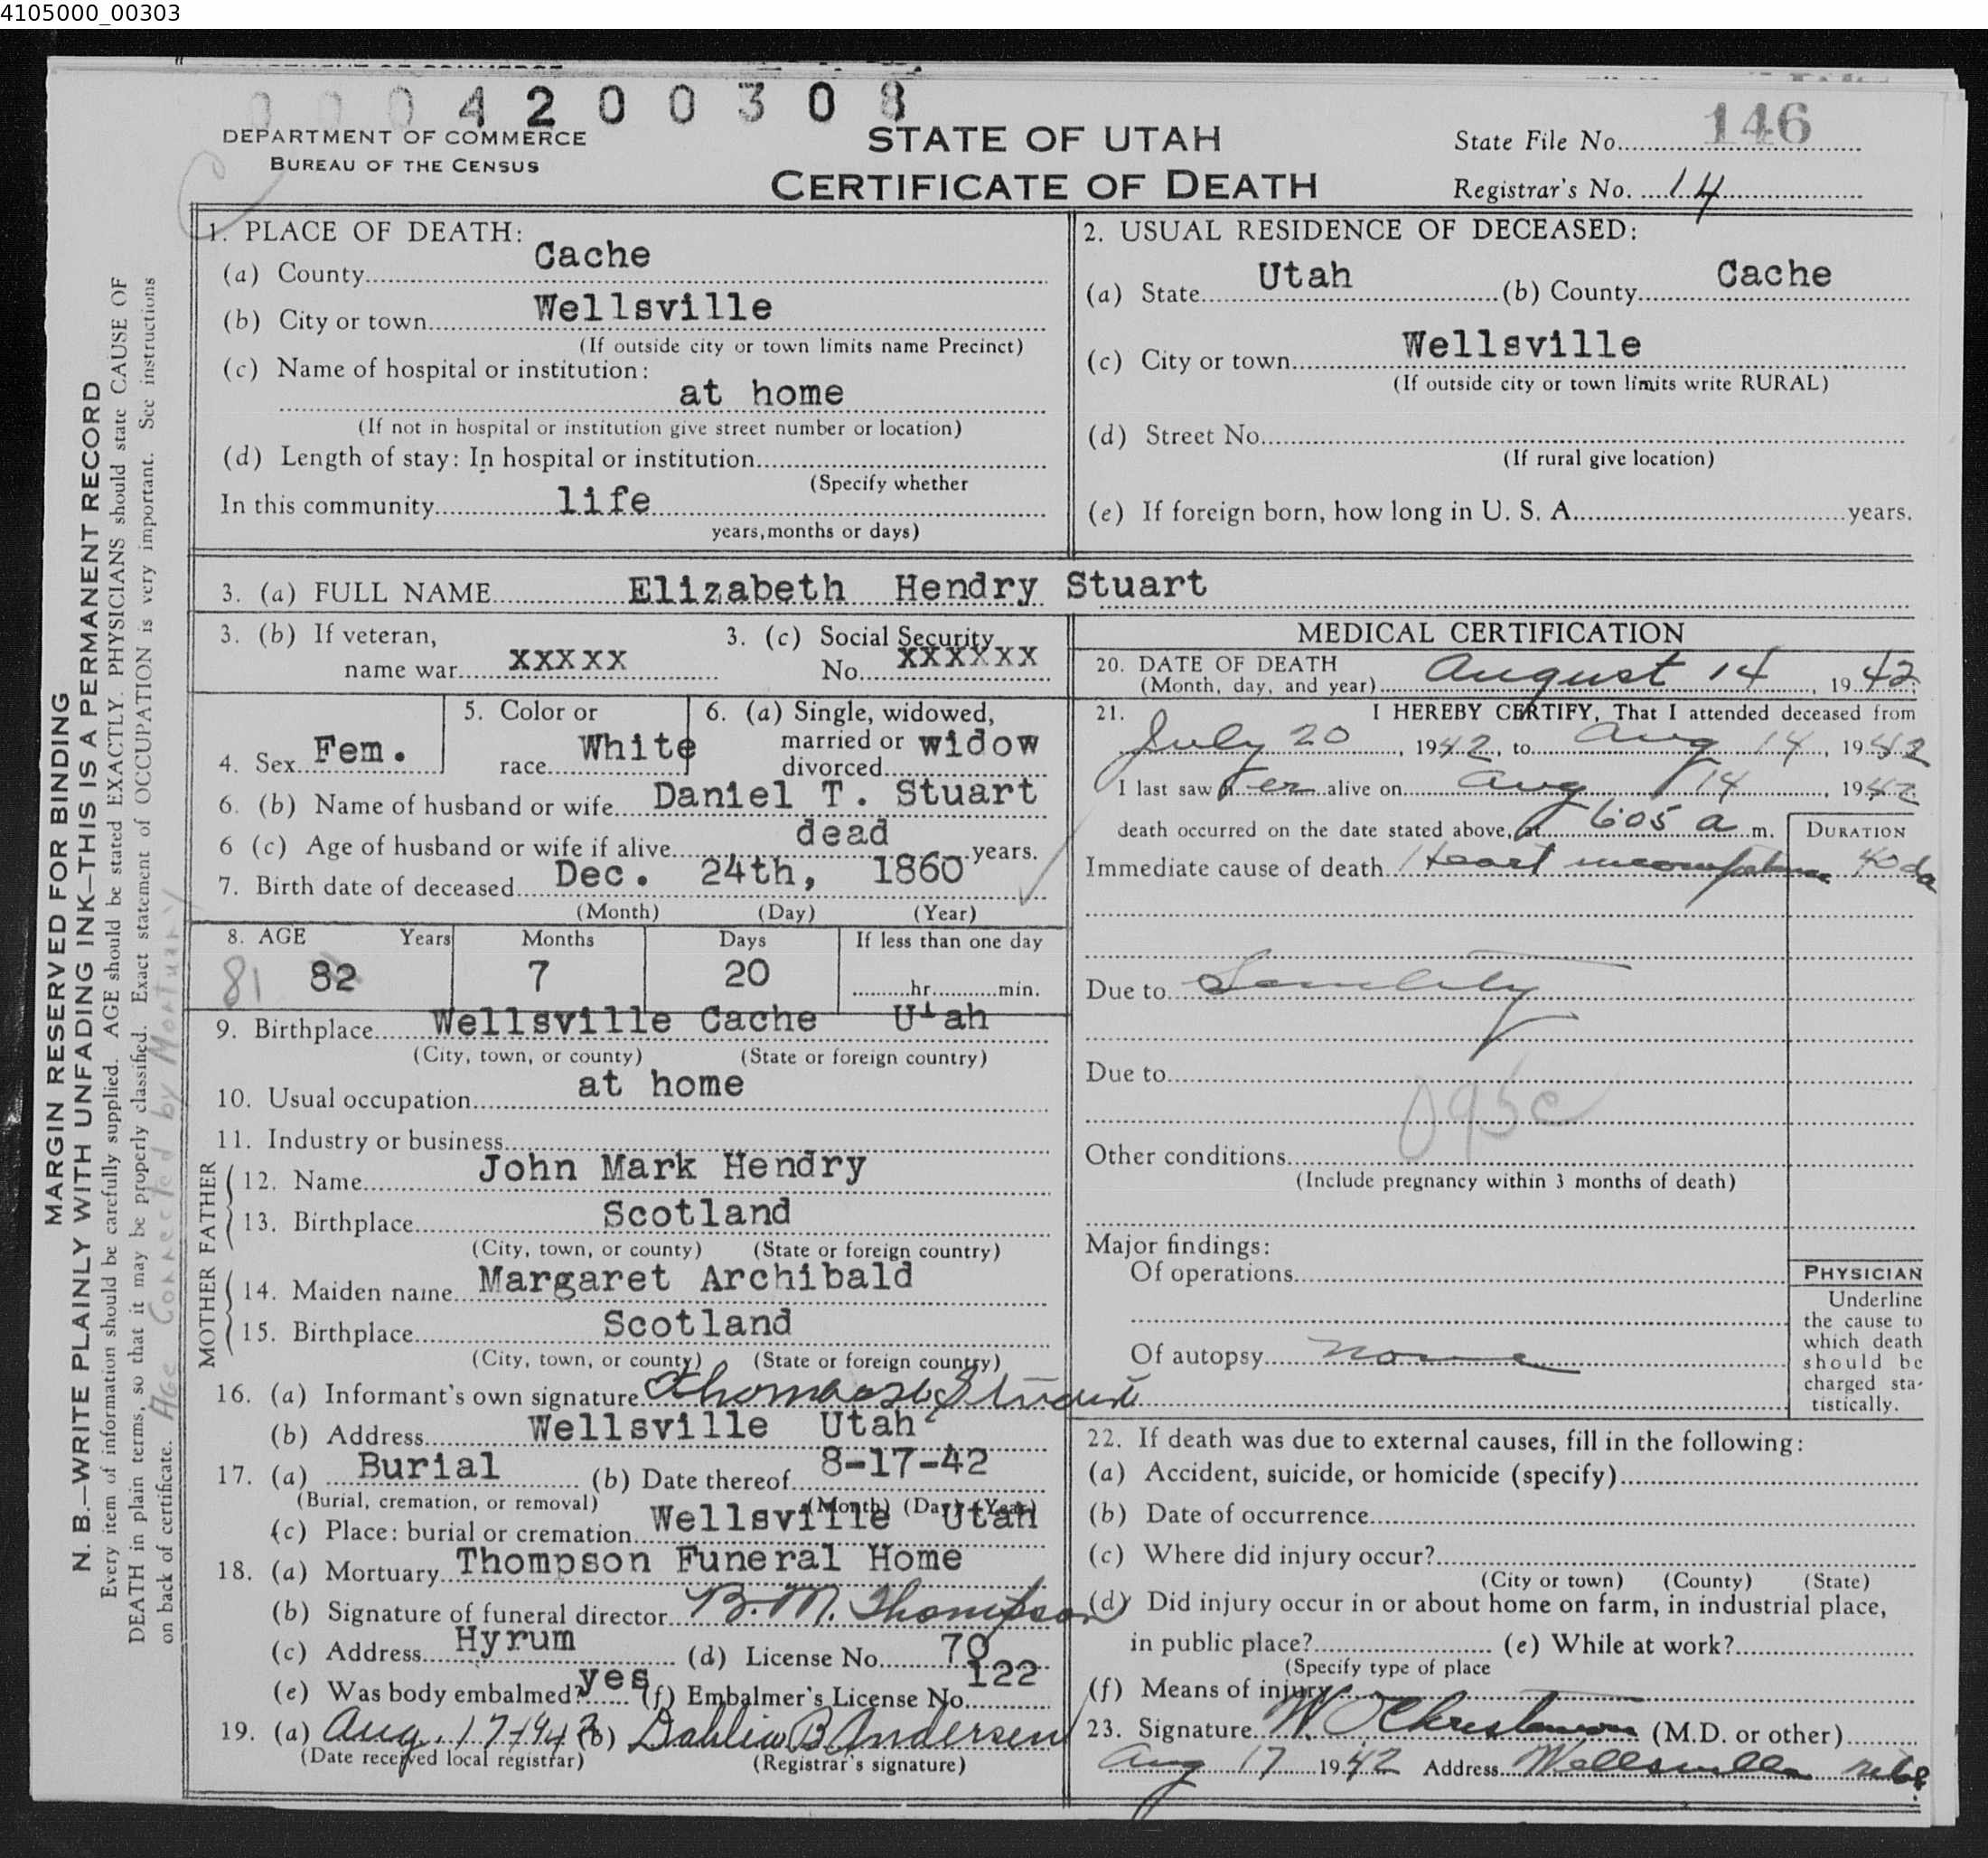 4105000_00303
0 0 0 4 2 0 0 3 0 8
DEPARTMENT OF COMMERCE
BUREAU OF THE CENSUS
STATE OF UTAH
CERTIFICATE OF DEATH
State File No. 146
Registrar's No. 14
1. PLACE OF DEATH:
(a) County Cache
(b) City or town Wellsville
(If outside city or town limits name Precinct)
(c) Name of hospital or institution:
at home
(If not in hospital or institution give street number or location)
(d) Length of stay: In hospital or institution
(Specify whether
In this community life
years, months or days)
2. USUAL RESIDENCE OF DECEASED:
(a) State Utah (b) County Cache
(c) City or town Wellsville
(If outside city or town limits write RURAL)
(d) Street No.
(If rural give location)
(e) If foreign born, how long in U. S. A. years.
3. (a) FULL NAME Elizabeth Hendry Stuart
3. (b) If veteran, 3. (c) Social Security
name war xxxxx No. xxxxxx
4. Sex Fem. 5. Color or race White 6. (a) Single, widowed, married or divorced widow
6. (b) Name of husband or wife Daniel T. Stuart
6 (c) Age of husband or wife if alive dead years.
7. Birth date of deceased Dec. 24th, 1860
(Month) (Day) (Year)
8. AGE Years Months Days If less than one day
81 82 7 20 hr. min.
9. Birthplace Wellsville Cache Utah
(City, town, or county) (State or foreign country)
10. Usual occupation at home
11. Industry or business
FATHER
12. Name John Mark Hendry
13. Birthplace Scotland
(City, town, or county) (State or foreign country)
MOTHER
14. Maiden name Margaret Archibald
15. Birthplace Scotland
(City, town, or county) (State or foreign country)
16. (a) Informant's own signature Stuart
(b) Address Wellsville Utah
17. (a) Burial (b) Date thereof 8-17-42
(Burial, cremation, or removal) (Month) (Day) (Year)
(c) Place: burial or cremation Wellsville Utah
18. (a) Mortuary Thompson Funeral Home
(b) Signature of funeral director B. M. Thompson
(c) Address Hyrum (d) License No. 70
(e) Was body embalmed? yes (f) Embalmer's License No. 122
19. (a) Aug. 17-1942 (b) Dahlia B Andersen
(Date received local registrar) (Registrar's signature)
MEDICAL CERTIFICATION
20. DATE OF DEATH
(Month, day, and year) August 14, 1942
21. I HEREBY CERTIFY, That I attended deceased from
July 20, 1942, to Aug 14, 1942
I last saw her alive on Aug 14, 1942
death occurred on the date stated above, at 605 a m. DURATION
Immediate cause of death Heart 40 da
Due to Senility
Due to
095c
Other conditions
(Include pregnancy within 3 months of death)
Major findings:
Of operations
Of autopsy none
PHYSICIAN
Underline
the cause to
which death
should be
charged sta-
tistically.
22. If death was due to external causes, fill in the following:
(a) Accident, suicide, or homicide (specify)
(b) Date of occurrence
(c) Where did injury occur?
(City or town) (County) (State)
(d) Did injury occur in or about home on farm, in industrial place,
in public place? (e) While at work?
(Specify type of place
(f) Means of injury
23. Signature W. O Christensen (M.D. or other)
Aug 17 1942 Address Wellsville
MARGIN RESERVED FOR BINDING
N. B.—WRITE PLAINLY WITH UNFADING INK—THIS IS A PERMANENT RECORD
Every item of information should be carefully supplied. AGE should be stated EXACTLY. PHYSICIANS should state CAUSE OF
DEATH in plain terms, so that it may be properly classified. Exact statement of OCCUPATION is very important. See instructions
on back of certificate.
Age Corrected by Mortuary